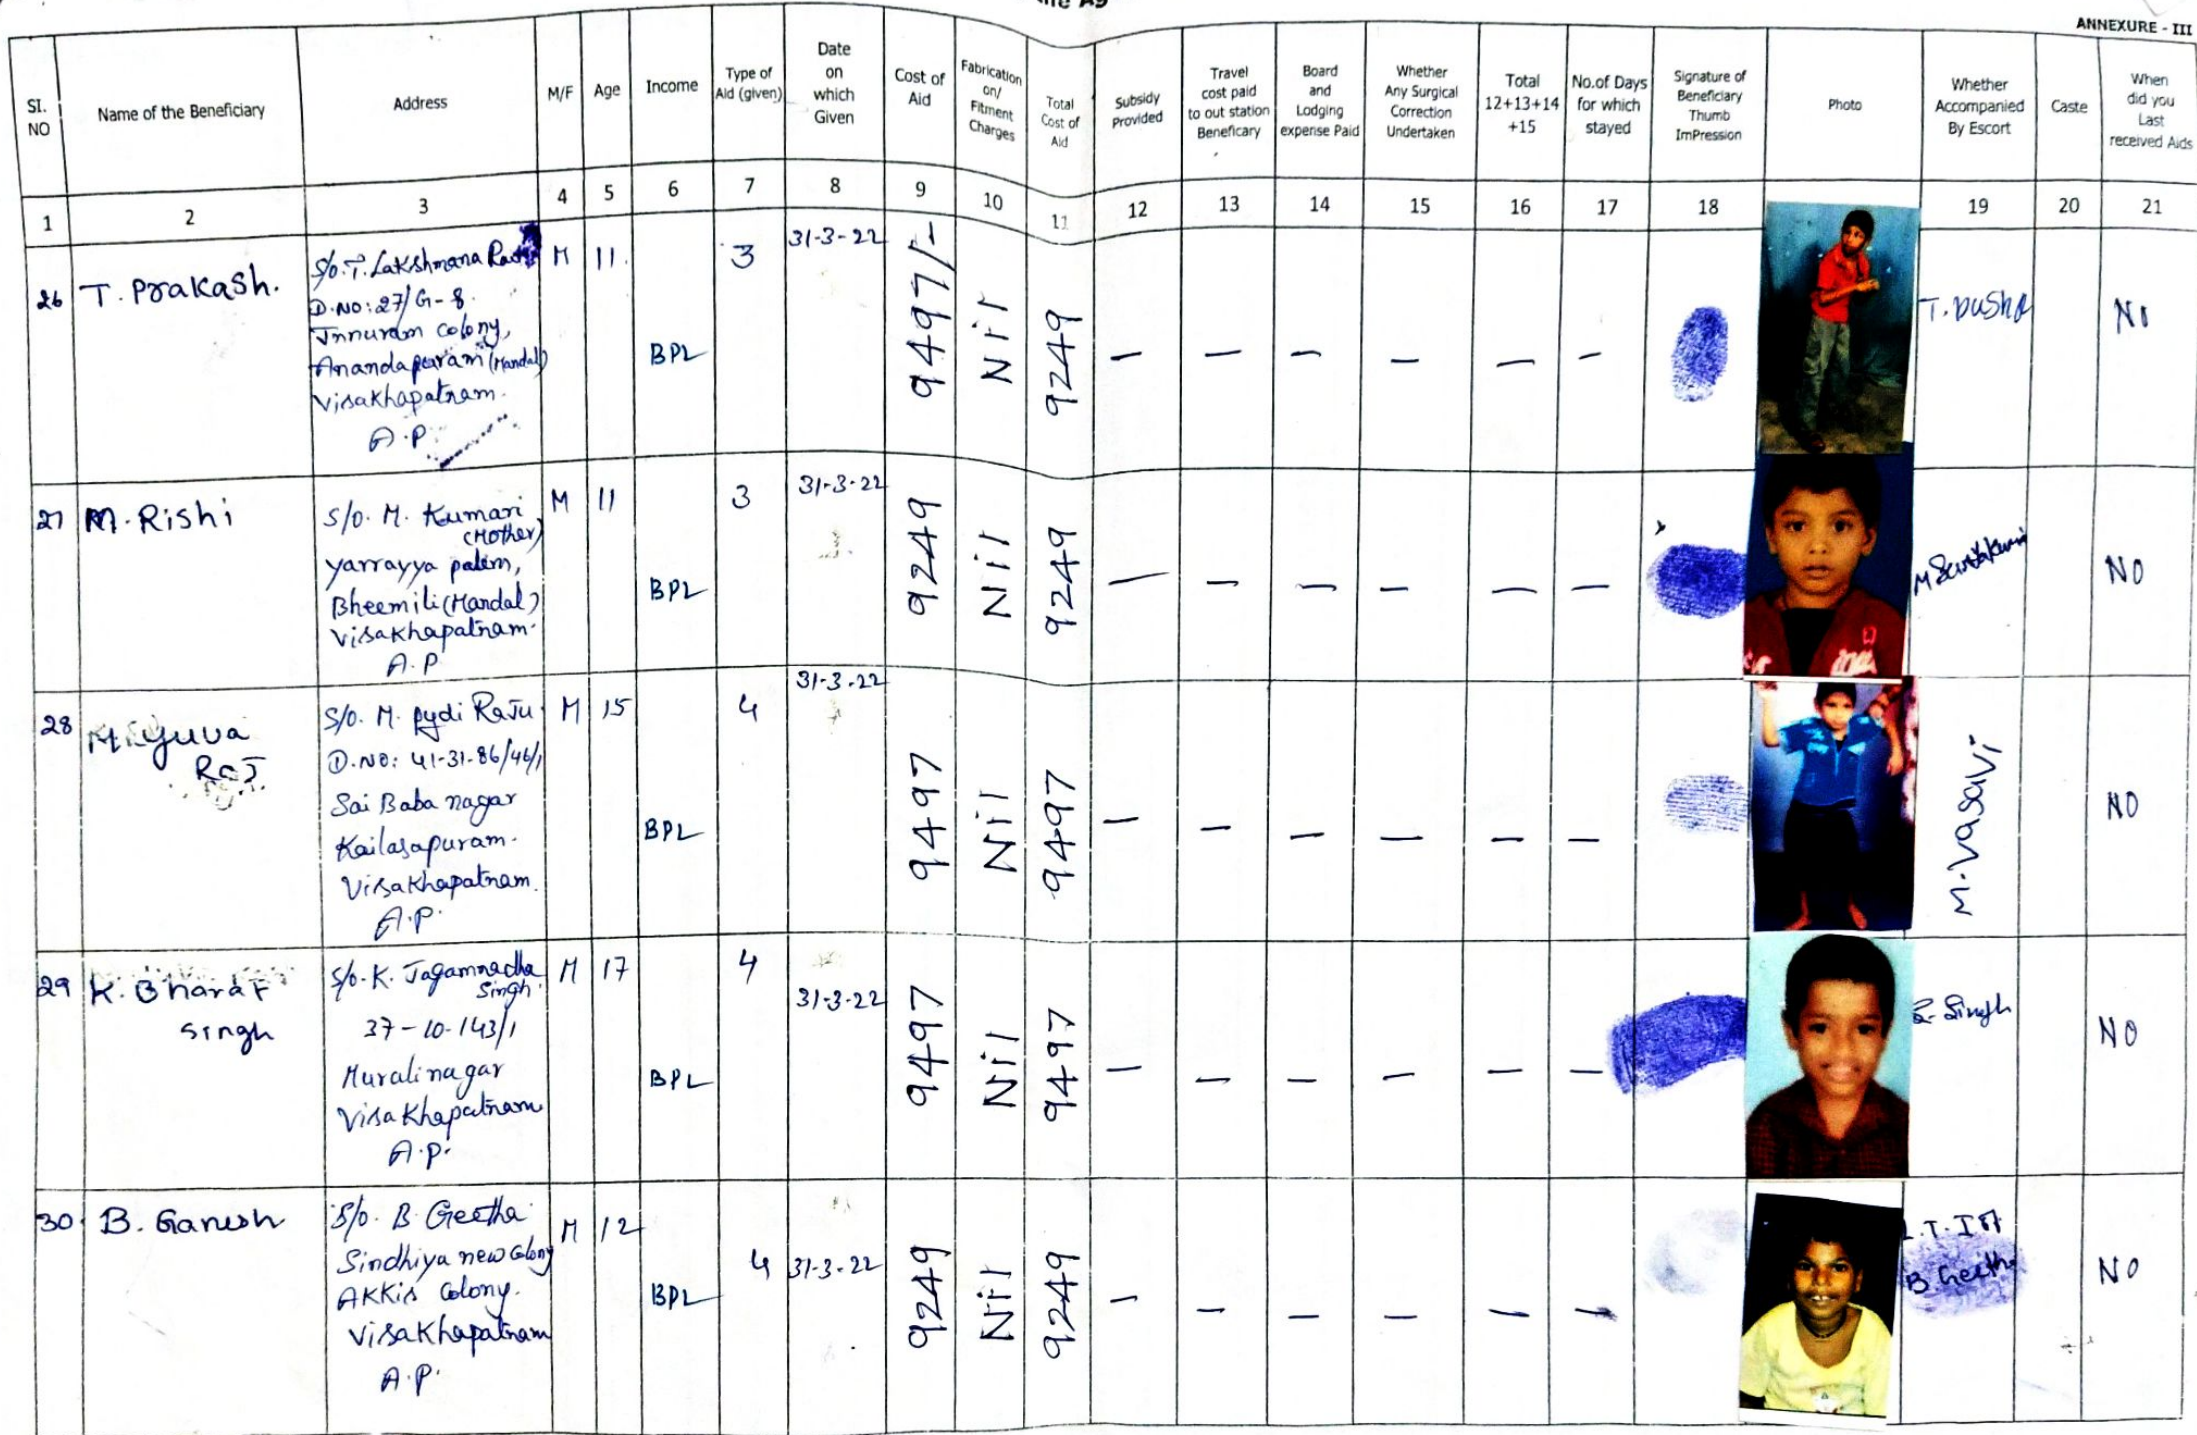 ANNEXURE - III
SI. NO
Name of the Beneficiary
Address
M/F
Age
Income
Type of
Aid (given)
Date
on
which
Given
Cost of
Aid
Fabrication
on/
Fitment
Charges
Total
Cost of
Aid
Subsidy
Provided
Travel
cost paid
to out station
Beneficary
Board
and
Lodging
expense Paid
Whether
Any Surgical
Correction
Undertaken
Total
12+13+14
+15
No.of Days
for which
stayed
Signature of
Beneficiary
Thumb
ImPression
Photo
Whether
Accompanied
By Escort
Caste
When
did you
Last
received Aids
1 2 3 4 5 6 7 8 9 10 11 12 13 14 15 16 17 18 19 20 21
26 T. Prakash.
S/o. T. Lakshmana
D.NO: 27/G-8
colony,
Anandapuram (Mandal)
Visakhapatnam.
A.P.
M 11. BPL 3 31-3-22 9497/- Nil 9249 — — — — — — T. NO
27 M. Rishi
S/o. M. Kumari
(Mother)
yarrayya palem,
Bheemili (Mandal)
Visakhapatnam.
A.P
M 11 BPL 3 31-3-22 9249 Nil 9249 — — — — — — M NO
28 M. Yuva
Raj
S/o. M. Pydi Raju
D.NO: 41-31-86/46/1
Sai Baba nagar
Kailasapuram.
Visakhapatnam.
A.P.
M 15 BPL 4 31-3-22 9497 Nil 9497 — — — — — — M. Vasavi NO
29 K. Bharat
Singh
S/o. K. Jagamnadha
Singh.
37-10-143/1
Muralinagar
Visakhapatnam
A.P.
M 17 BPL 4 31-3-22 9497 Nil 9497 — — — — — — Singh NO
30 B. Ganesh
S/o. B. Geetha
Sindhiya new Colony
AKKis Colony.
Visakhapatnam
A.P.
M 12 BPL 4 31-3-22 9249 Nil 9249 — — — — — — L.T.I of
B. Geetha NO